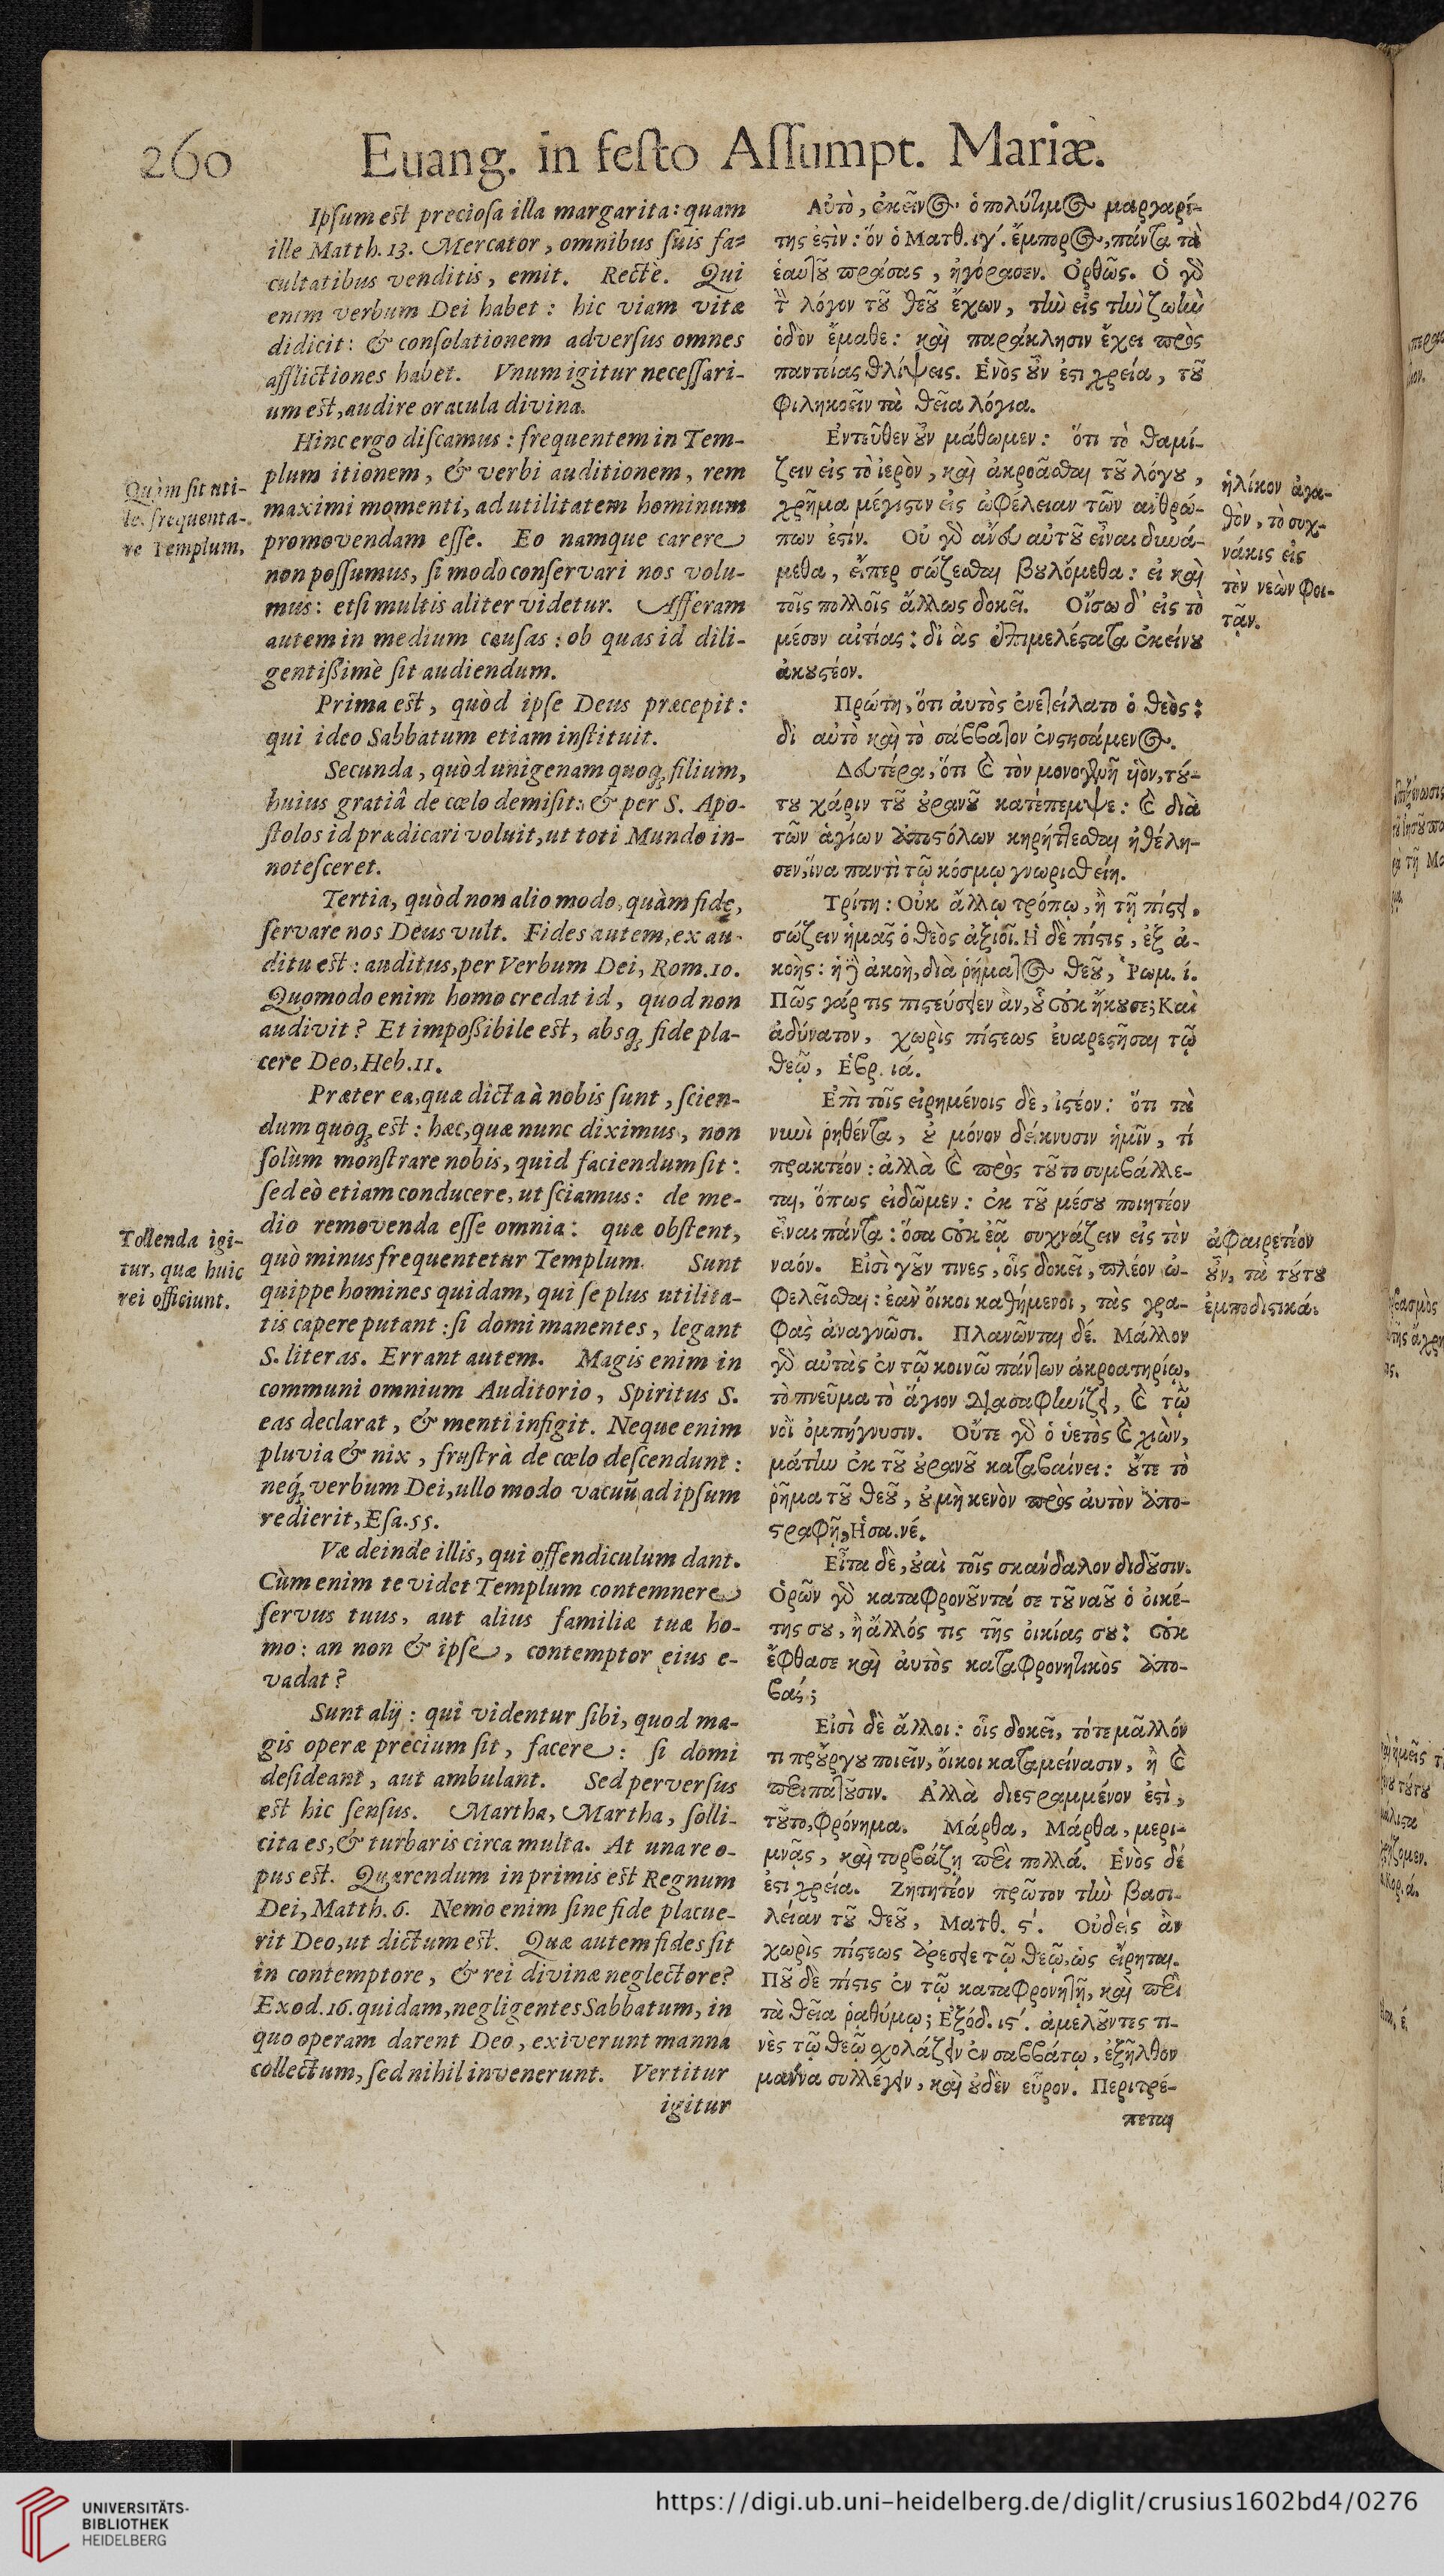 260
Euang. in feſto Aſſumpt. Mariæ.
Ipſum eſt precioſa illa margarita: quam
ille Matth. 13. Mercator, omnibus ſuis fa-
cultatibus venditis, emit. Rectè. Qui
enim verbum Dei habet: hic viam vitæ
didicit: & conſolationem adverſus omnes
afflictiones habet. Vnum igitur neceſſari-
um eſt, audire oracula divina.
Hinc ergo diſcamus: frequentem in Tem-
plum itionem, & verbi auditionem, rem
maximi momenti, ad utilitatem hominum
promovendam eſſe. Eo namque carere
non poſſumus, ſi modo conſervari nos volu-
mus: etſi multis aliter videtur. Afferam
autem in medium cauſas: ob quas id dili-
gentißimè ſit audiendum.
Prima eſt, quòd ipſe Deus præcepit:
qui ideo Sabbatum etiam inſtituit.
Secunda, quòd unigenam quoq; filium,
huius gratiâ de cœlo demiſit: & per S. Apo-
ſtolos id prædicari voluit, ut toti Mundo in-
noteſceret.
Tertia, quòd non alio modo, quàm fide,
ſervare nos Deus vult. Fides autem, ex au-
ditu eſt: auditus, per Verbum Dei, Rom. 10.
Quomodo enim homo credat id, quod non
audivit? Et impoßibile eſt, absq; fide pla-
cere Deo, Heb. 11.
Præter ea, quæ dicta à nobis ſunt, ſcien-
dum quoq; eſt: hæc, quæ nunc diximus, non
ſolùm monſtrare nobis, quid faciendum ſit:
ſed eò etiam conducere, ut ſciamus: de me-
dio removenda eſſe omnia: quæ obſtent,
quò minus frequentetur Templum. Sunt
quippe homines quidam, qui ſe plus utilita-
tis capere putant: ſi domi manentes, legant
S. literas. Errant autem. Magis enim in
communi omnium Auditorio, Spiritus S.
eas declarat, & menti infigit. Neque enim
pluvia & nix, fruſtrà de cœlo deſcendunt:
neq; verbum Dei, ullo modo vacuũ ad ipſum
redierit, Eſa. 55.
Væ deinde illis, qui offendiculum dant.
Cùm enim te videt Templum contemnere
ſervus tuus, aut alius familiæ tuæ ho-
mo: an non & ipſe, contemptor eius e-
vadat?
Sunt alij: qui videntur ſibi, quod ma-
gis operæ precium ſit, facere: ſi domi
deſideant, aut ambulant. Sed perverſus
eſt hic ſenſus. Martha, Martha, ſolli-
cita es, & turbaris circa multa. At una re o-
pus eſt. Quærendum in primis eſt Regnum
Dei, Matth. 6. Nemo enim ſine fide placue-
rit Deo, ut dictum eſt. Quæ autem fides ſit
in contemptore, & rei divinæ neglectore?
Exod. 16. quidam, negligentes Sabbatum, in
quo operam darent Deo, exiverunt manna
collectum, ſed nihil invenerunt. Vertitur
igitur
Quàm ſit uti-
le, frequenta-
re Templum.
Tollenda igi-
tur, quæ huic
rei officiunt.
Αὐτὸ, ἐκεῖνος ὁ πολύτιμος μαργαρί-
της ἐςὶν: ὃν ὁ Ματθ. ιγ΄. ἔμπορος, πάντα τὰ
ἑαυτȣ͂ πράσας, ἠγόρασεν. Ὀρθῶς. Ὁ γὸ
τ̀ λόγον τȣ͂ θεȣ͂ ἔχων, τὴν εἰς τὴν ζωὴν
ὁδὸν ἔμαθε: καὶ παράκλησιν ἔχει πρὸς
παντοίας θλίψεις. Ἑνὸς ȣ̓͂ν ἐςι χρεία, τȣ͂
φιληκοεῖν τὰ θεῖα λόγια.
Ἐντεῦθεν ȣ̓͂ν μάθωμεν: ὅτι τὸ θαμί-
ζειν εἰς τὸ ἱερὸν, καὶ ἀκροᾶσθαι τȣ͂ λόγȣ,
χρῆμα μέγιςον εἰς ὠφέλειαν τῶν ἀνθρώ-
πων ἐςίν. Οὐ γὸ ἄνευ αὐτȣ͂ εἶναι δυνά-
μεθα, εἴπερ σώζεσθαι βȣλόμεθα: εἰ καὶ
τοῖς πολλοῖς ἄλλως δοκεῖ. Οἴσω δ' εἰς τὸ
μέσον αἰτίας: δι' ἃς ἐπιμελέςατα ἐκείνȣ
ἀκȣςέον.
Πρώτη, ὅτι ἀυτὸς ἐνετείλατο ὁ θεὸς:
δι' αὐτὸ καὶ τὸ σάββατον ἐνςησάμενος.
Δευτέρα, ὅτι καὶ τὸν μονογενῆ ὑὸν, τȣ́-
τȣ χάριν τȣ͂ ȣ̓ρανȣ͂ κατέπεμψε: καὶ διὰ
τῶν ἁγίων ἀποςόλων κηρύττεσθαι ἠθέλη-
σεν, ἵνα παντὶ τῷ κόσμῳ γνωρισθείη.
Τρίτη: Οὐκ ἄλλῳ τρόπῳ, ἢ τῇ πίςει,
σώζειν ἡμᾶς ὁ θεὸς ἀξιοῖ. Ἡ δὲ πίςις, ἐξ ἀ-
κοῆς: ἡ δὲ ἀκοὴ, διὰ ῥήματος θεȣ͂, Ῥωμ. ί.
Πῶς γάρ τις πιςεύσειεν ἂν, ȣ̔͂ οὐκ ἤκȣσε; Καὶ
ἀδύνατον, χωρὶς πίςεως ἐυαρεςῆσαι τῷ
θεῷ, Ἑβρ. ιά.
Ἐπὶ τοῖς εἰρημένοις δὲ, ἰςέον: ὅτι τὰ
νυνὶ ῥηθέντα, ȣ̓ μόνον δείκνυσιν ἡμῖν, τί
πρακτέον: ἀλλὰ καὶ πρὸς τȣ͂το συμβάλλε-
ται, ὅπως εἰδῶμεν: ἐκ τȣ͂ μέσȣ ποιητέον
εἶναι πάντα: ὅσα οὐκ ἐᾷ συχνάζειν εἰς τὸν
ναόν. Εἰσὶ γȣ͂ν τινες, οἷς δοκεῖ, πλέον ὠ-
φελεῖσθαι: ἐὰν ὄικοι καθήμενοι, τὰς γρα-
φὰς ἀναγνῶσι. Πλανῶνται δέ. Μάλλον
γὸ αὐτὰς ἐν τῷ κοινῷ πάντων ἀκροατηρίῳ,
τὸ πνεῦμα τὸ ἅγιον διασαφηνίζει, καὶ τῷ
νοῒ ἐμπήγνυσιν. Οὔτε γὸ ὁ ὑετὸς καὶ χιὼν,
μάτην ἐκ τȣ͂ ȣ̓ρανȣ͂ καταβαίνει: ȣ̓́τε τὸ
ῥῆμα τȣ͂ θεȣ͂, ȣ̓ μὴ κενὸν πρὸς ἀυτὸν ἀπο-
ςραφῇ, Ἡσα. νέ.
Εἶτα δὲ, ȣ̓αὶ τοῖς σκάνδαλον διδȣ͂σιν.
Ὁρῶν γὸ καταφρονȣ͂ντά σε τȣ͂ ναȣ͂ ὁ ὀικέ-
της σȣ, ἢ ἄλλός τις τῆς ὀικίας σȣ: οὐκ
ἔφθασε καὶ ἀυτὸς καταφρονητικὸς ἀπο-
βάς;
Εἰσὶ δὲ ἄλλοι: οἷς δοκεῖ, τότε μᾶλλόν
τι πρȣ̓́ργȣ ποιεῖν, ὄικοι καταμείνασιν, ἢ καὶ
περιπατȣ͂σιν. Ἀλλὰ διεςραμμένον ἐςὶ,
τȣ͂το, φρόνημα. Μάρθα, Μάρθα, μερι-
μνᾷς, καὶ τυρβάζῃ περὶ πολλά. Ἑνὸς δέ
ἐςι χρεία. Ζητητέον πρῶτον τὴν βασι-
λείαν τȣ͂ θεȣ͂, Ματθ. ς΄. Οὐδεὶς ἂν
χωρὶς πίςεως ἀρέσειε τῷ θεῷ, ὡς εἴρηται.
Πȣ͂ δὲ πίςις ἐν τῷ καταφρονητῇ, καὶ περὶ
τὰ θεῖα ῥαθύμῳ; Ἐξόδ. ις΄. ἀμελȣ͂ντες τι-
νὲς τῷ θεῷ σχολάζειν ἐν σαββάτῳ, ἐξῆλθον
μάννα συλλέγειν, καὶ ȣ̓δὲν εὗρον. Περιτρέ-
πεται
ἡλίκον ἀγα-
θὸν, τὸ συχ-
νάκις εἰς
τὸν νεὼν φοι-
τᾷν.
ἀφαιρετέον
ȣ̓͂ν, τὰ τȣ́τȣ
ἐμποδιςικά.
UNIVERSITÄTS-
BIBLIOTHEK
HEIDELBERG
https://digi.ub.uni-heidelberg.de/diglit/crusius1602bd4/0276